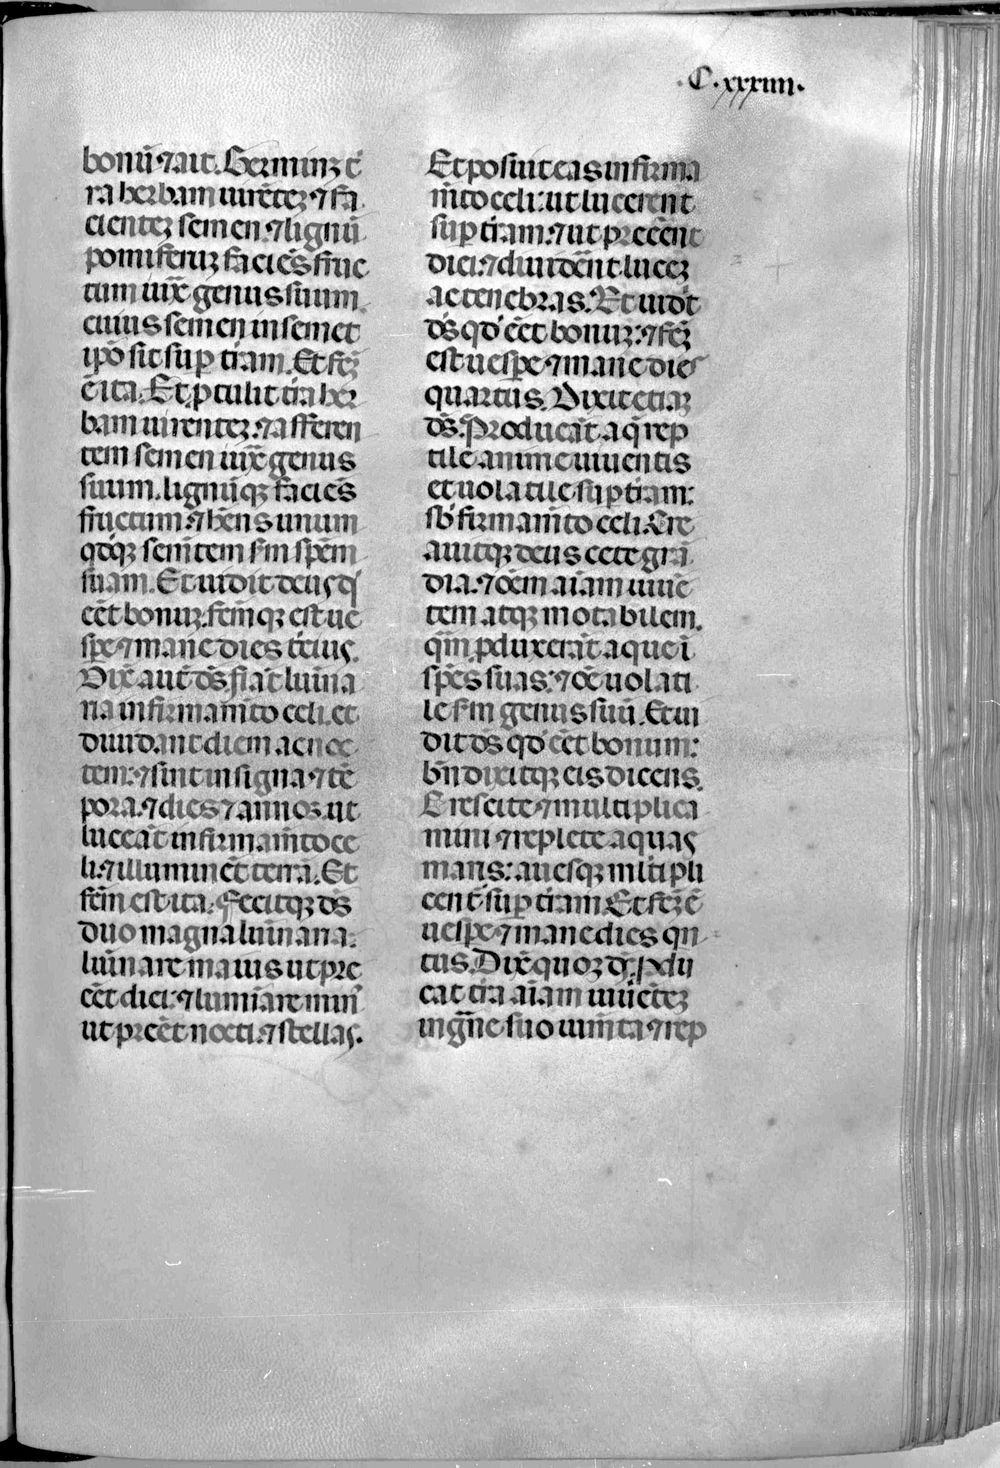 .C.xxxiiii.
bonū ⁊ ait. Germinꝫ t̄
ra herbam uirēteꝫ ⁊ fa
cienteꝫ semen. ⁊ lignū
pomiferuꝫ faciēs fruc
tum iux̄ genus suum.
cuius semen in semet
ip̄o sit suꝑ t̄ram. Et fc̄ꝫ
ē ita. Et ꝓtulit t̄ra her
bam uirenteꝫ. ⁊ afferen
tem semen iux̄ genus
suum. lignūqꝫ faciēs
fructum. ⁊ hēns unum
qdqꝫ sem̄tem sm̄ spēm
suam. Et uidit deus qd̓
eēt bonuꝫ. fcm̄qꝫ est ue
spe ⁊ mane dies t̄cius.
Dix̄ aut̄ ds̄. fiāt lumīa
ria in firmam̄to celi. et
diuidant diem ac noc
tem: ⁊ sint in signa ⁊ tē
pora. ⁊ dies ⁊ annos. ut
luceāt in firmam̄to ce
li. ⁊ illuminēt terrā. Et
fcm̄ est ita. Fecitqꝫ ds̄
duo magna lumīaria.
lumīare maius ut pre
eēt diei. ⁊ lumīare min̄
ut preēt nocti. ⁊ stellas.
Et posuit eas in firma
m̄to celi: ut lucerent
suꝑ t̄ram: ⁊ ut preēent
diei. ⁊ diuidēnt luceꝫ
ac tenebras. Et uidit
ds̄ qd̓ eēt bonuꝫ: ⁊ fc̄ꝫ
est uespe ⁊ mane dies
quartus. Dixit etiaꝫ
ds̄. Producāt aq̄ rep
tile anime uiuentis
et uolatile suꝑ t̄ram:
sb̓ firmam̄to celi. Cre
auitqꝫ deus cete grā
dia. ⁊ oēm aīam uiuē
tem atqꝫ motabilem.
qm̄ ꝓduxerāt aque ī
spēs suas: ⁊ oē uolati
le sm̄ genus suū. Et ui
dit ds̄ qd̓ eēt bonum:
bn̄dixitqꝫ eis dicens.
Crescite ⁊ multiplica
mini ⁊ replete aquas
maris: auesqꝫ mltipli
cent̄ suꝑ t̄ram. Et fc̄ꝫ ē
uespe ⁊ mane dies qn̄
tus. Dix̄ quoꝫ ds̄. ꝓdu
cat t̄ra aīam uiuēteꝫ
in gn̄e suo iumīta ⁊ rep